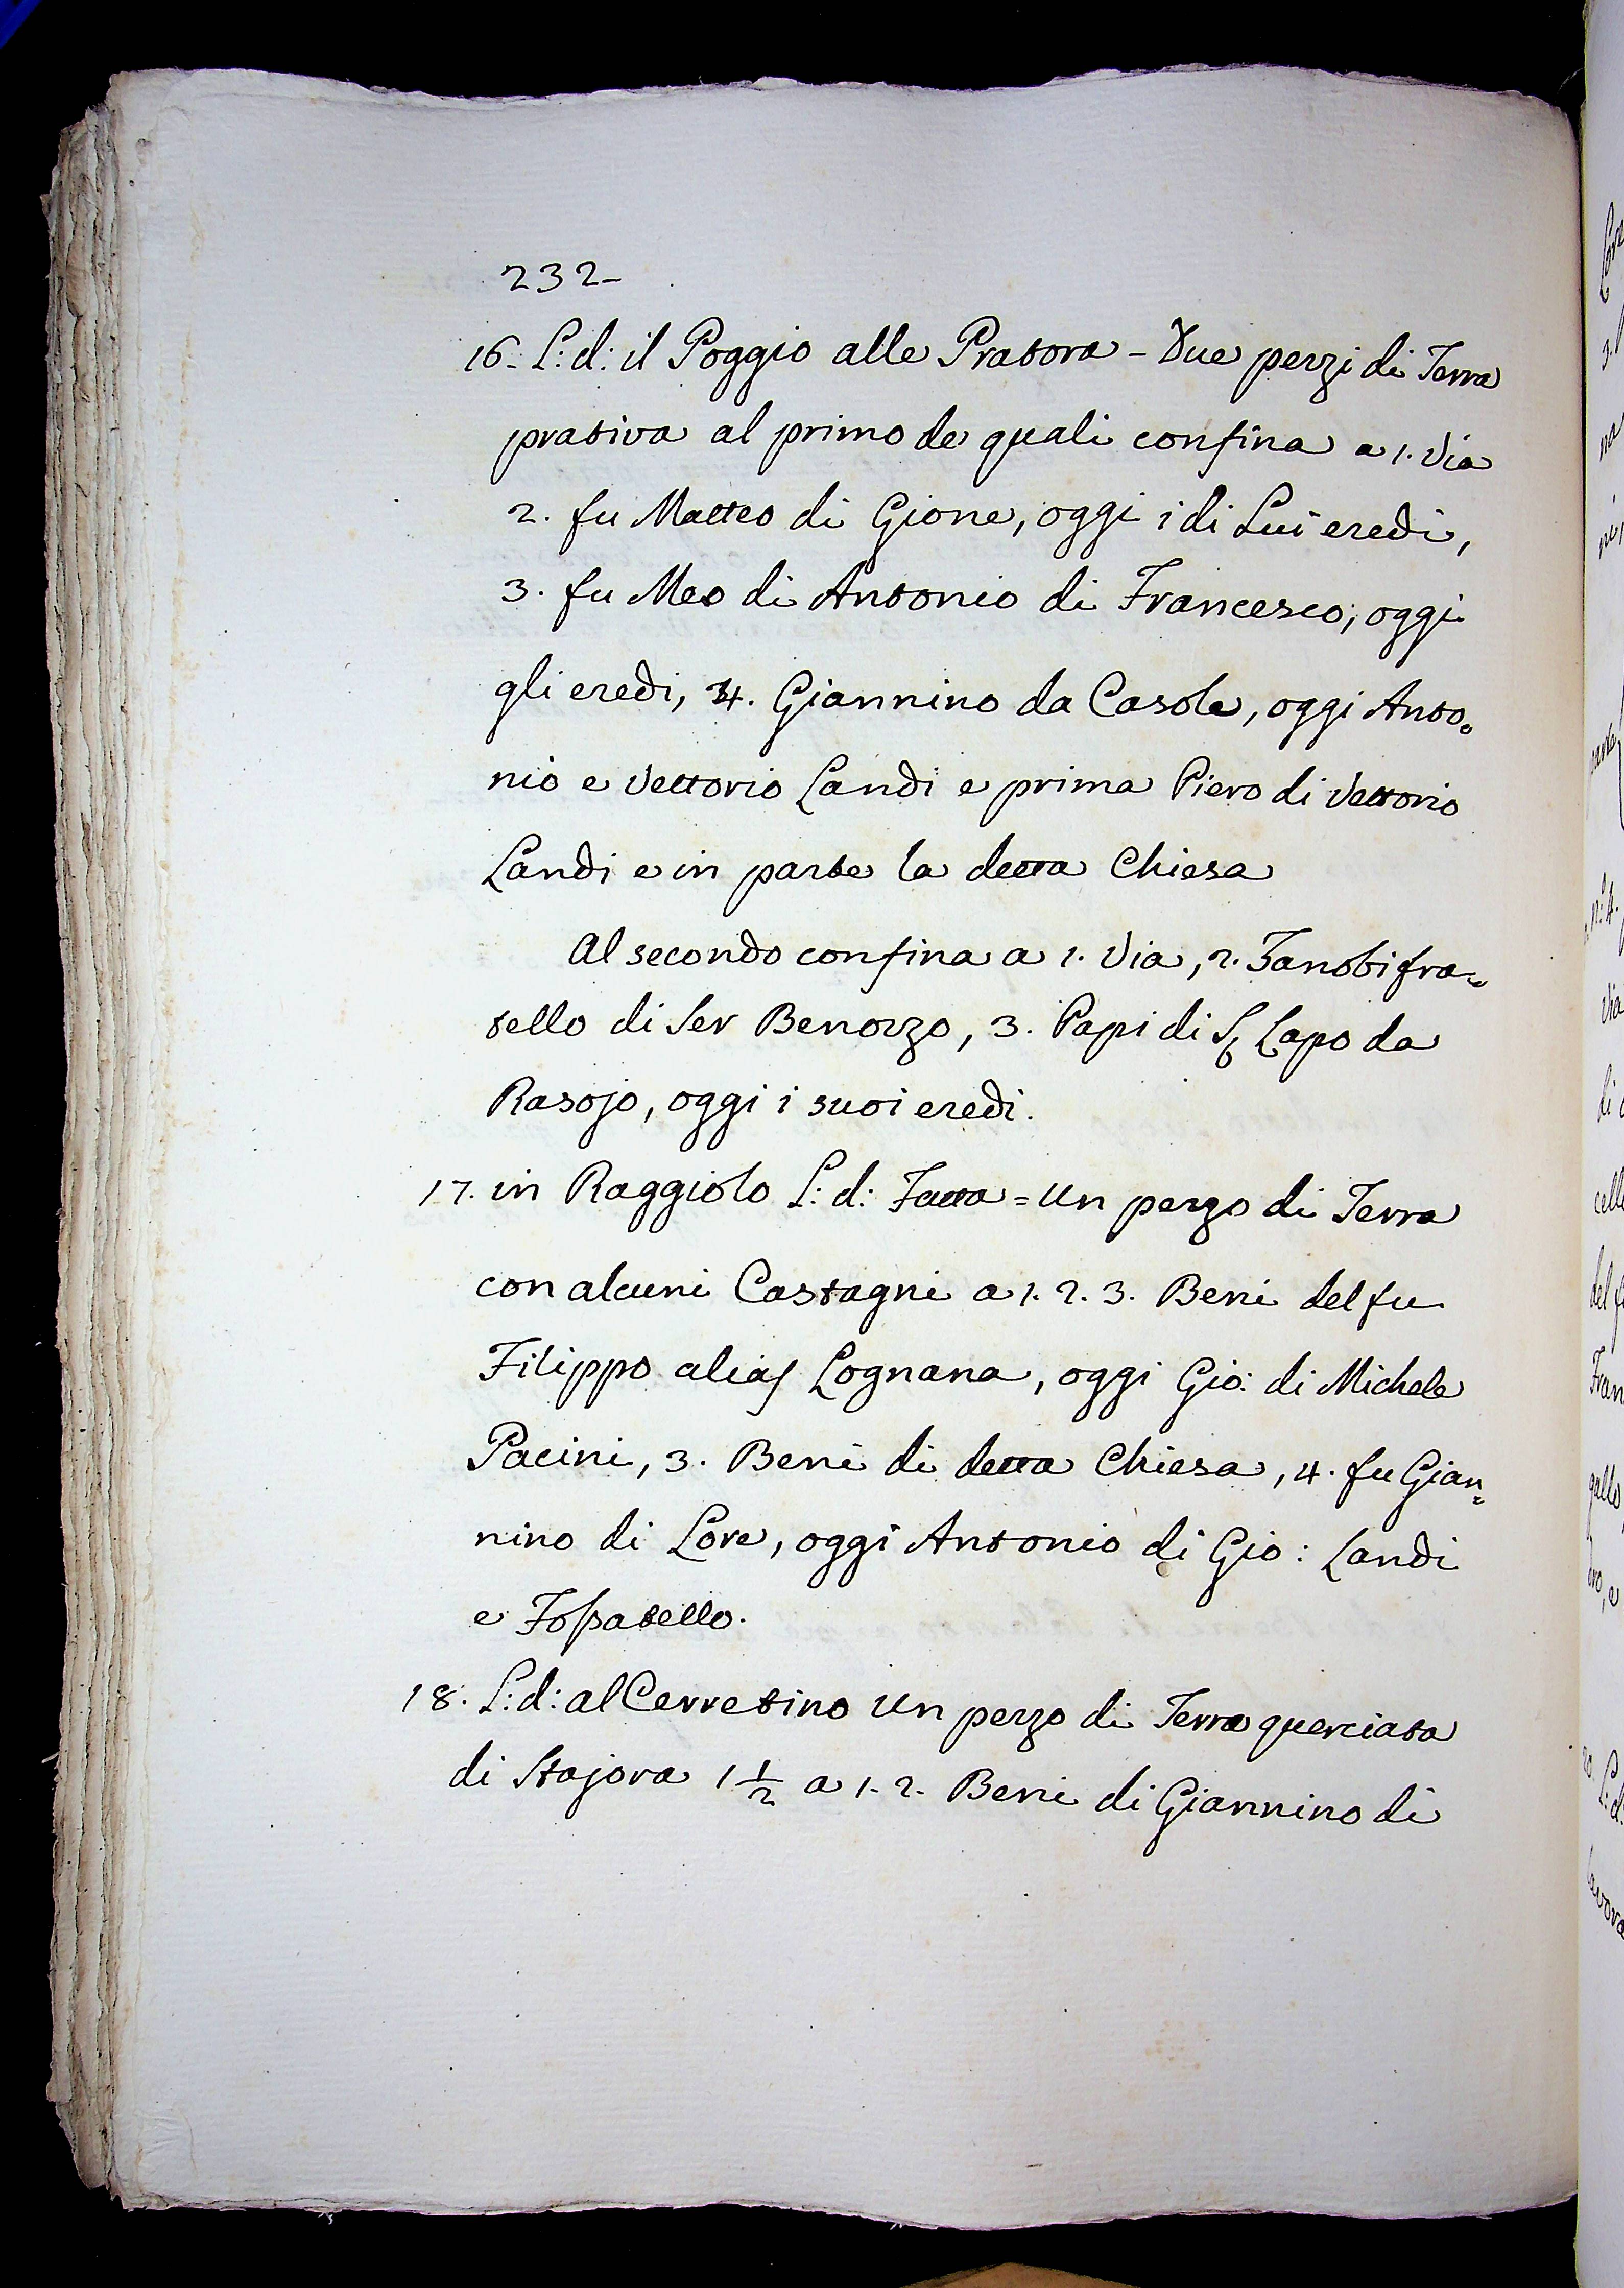 232-
16. L: d: il Poggio alle Pratora - Due pezzi di Terra
prativa al primo de quali confina a 1. Via
2. fu Matteo di Gione, oggi i di Lui eredi,
3. fu Meo di Antonio di Francesco; oggi
gli eredi, 4. Giannino da Casole, oggi Anto=
nio e Vettorio Landi e prima Piero di Vettorio
Landi e in parte la detta Chiesa
Al secondo confina a 1. Via, 2. Zanobi fra=
tello di Ser Benozzo, 3. Papi di Lapo da
Rasojo, oggi i suoi eredi.
17. in Raggiolo L: d: = Un pezzo di Terra
con alcuni Castagni a 1. 2. 3. Beni del fu
Filippo alias Lognana, oggi Gio: di Michele
Pacini, 3. Beni di detta Chiesa, 4. fu Gian=
nino di Lore, oggi Antonio di Gio: Landi
e Fossatello.
18. L: d: al Cerretino Un pezzo di Terra querciata
di Stajora 1 1/2 a 1. 2. Beni di Giannino di